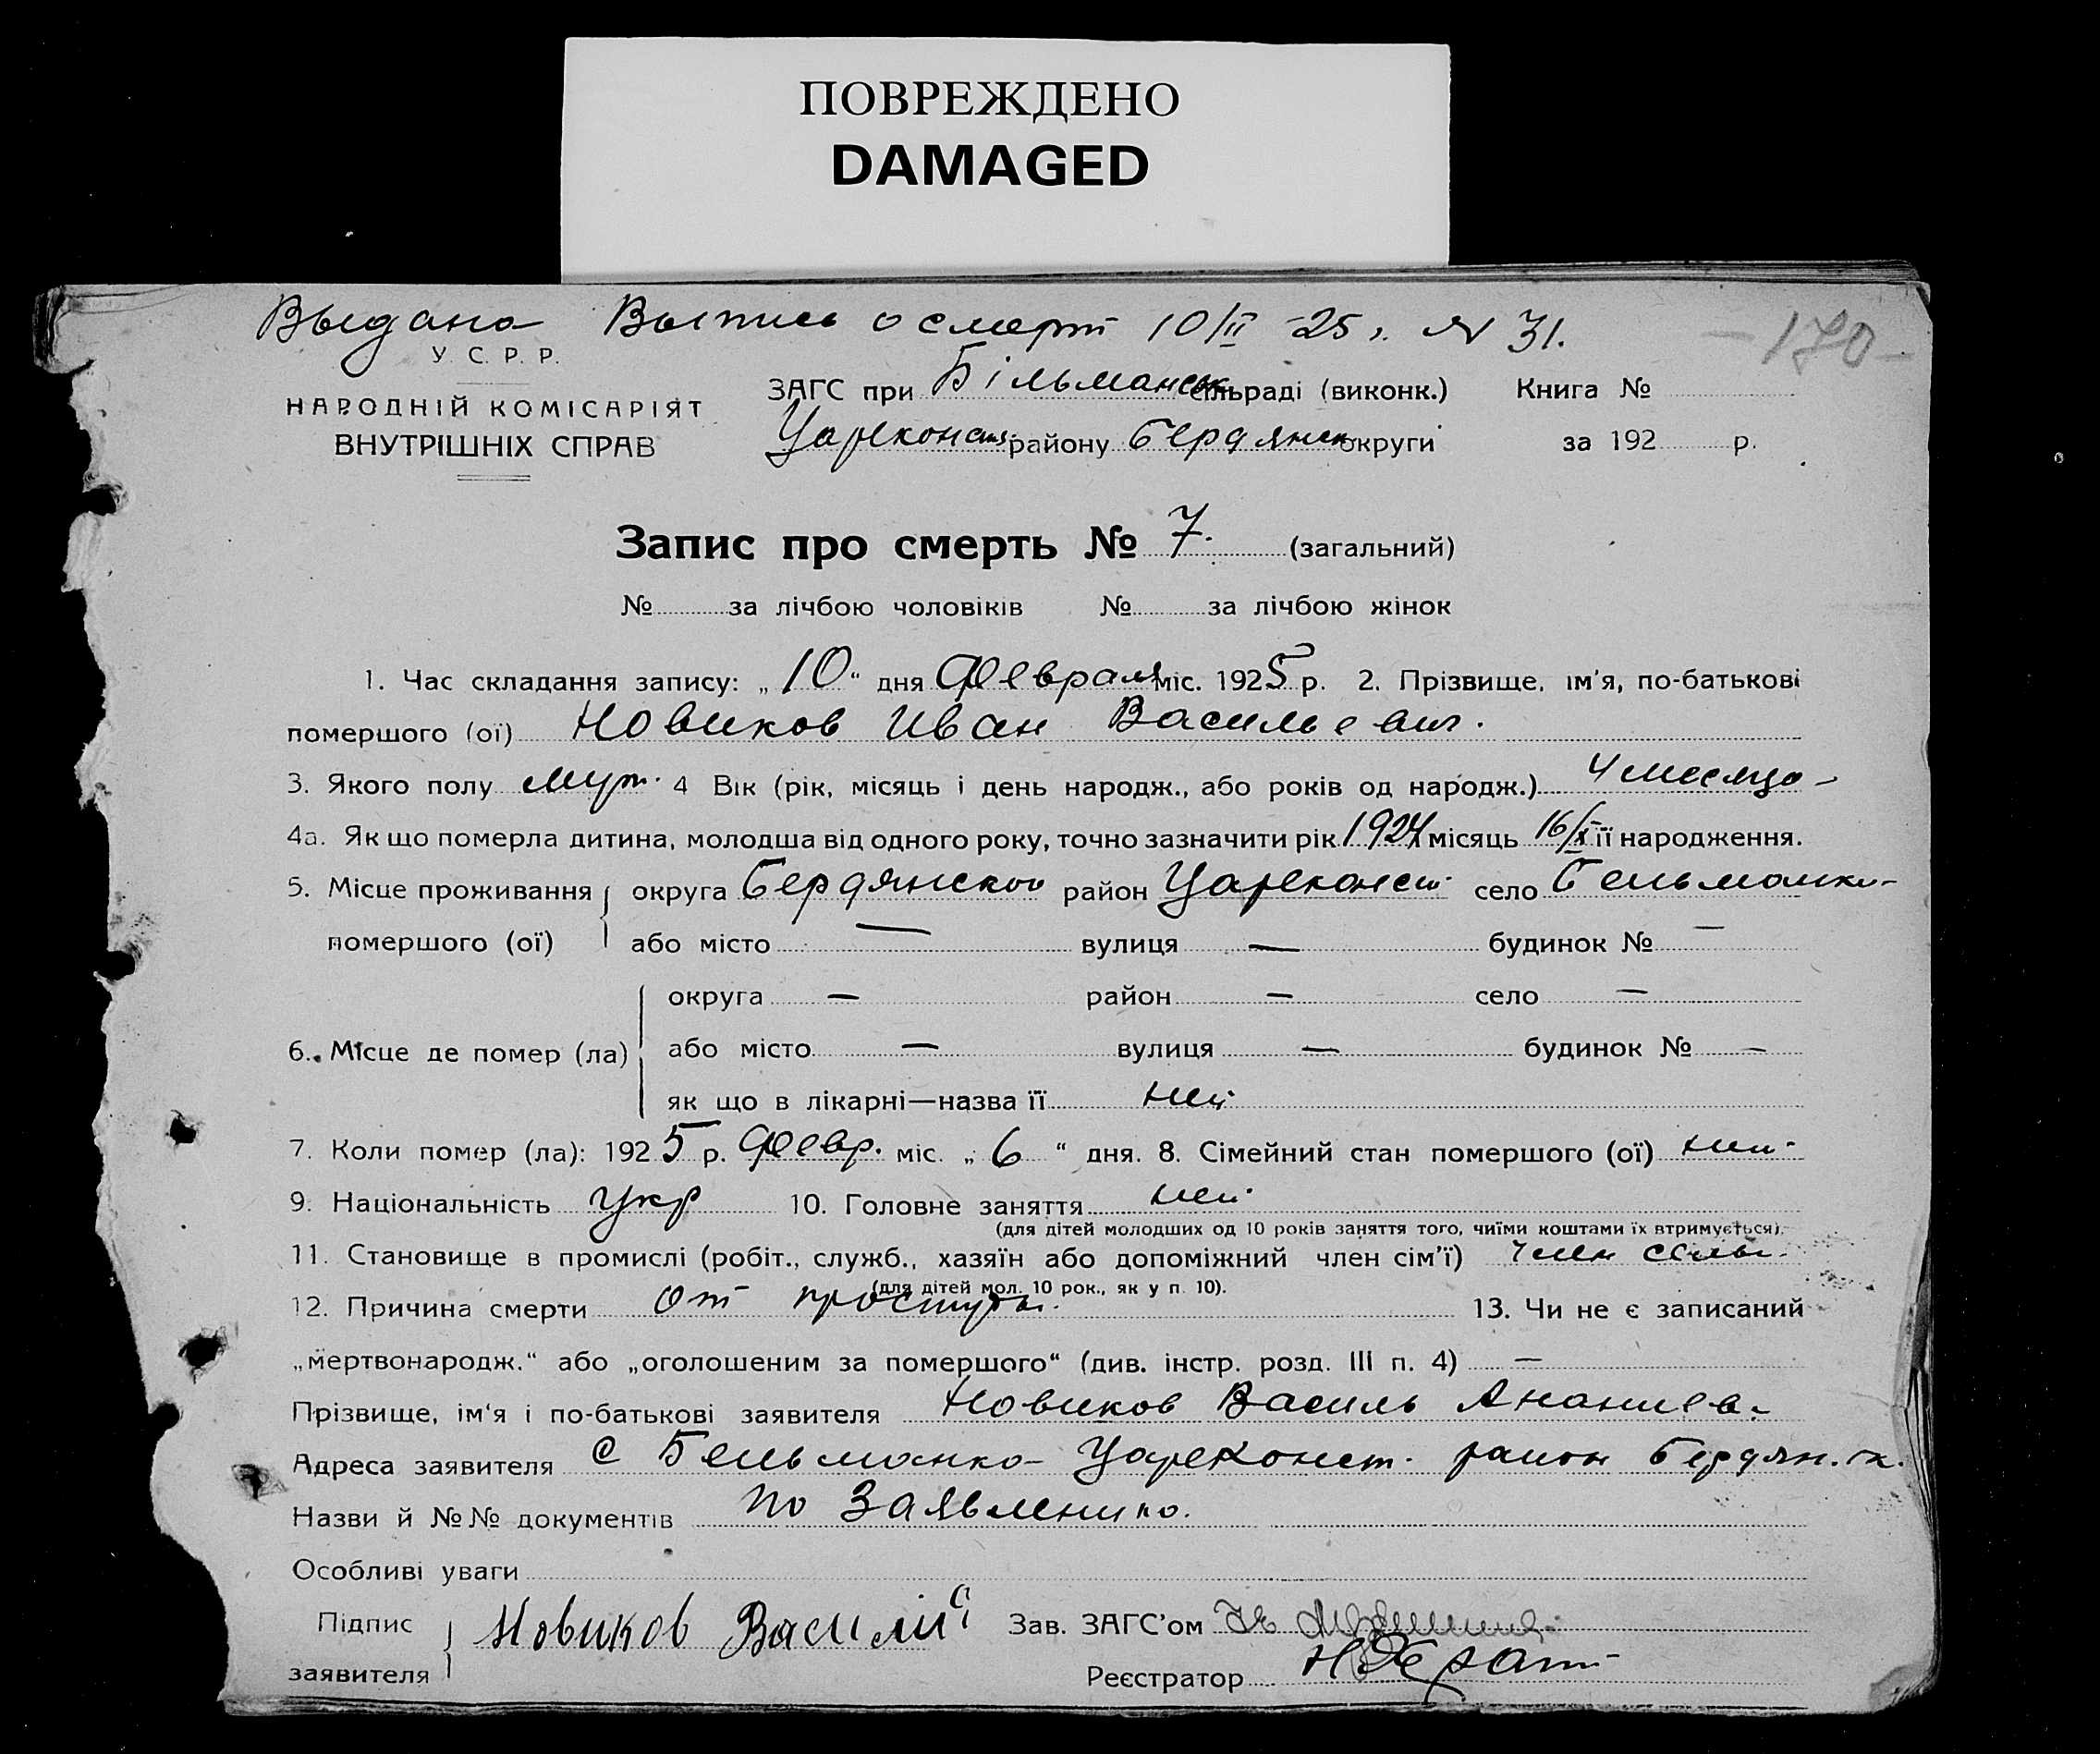 ПОВРЕЖДЕНО
DAMAGED
Выдана Выпись о смерт 10/II -25 г. № 31.
-170-
У. С. Р. Р.
НАРОДНІЙ КОМІСАРІЯТ
ВНУТРІШНІХ СПРАВ
ЗАГС при Більманск сільраді (виконк.) Книга №
Цареконст. району Бердянск округи за 192 р.
Запис про смерть № 7. (загальний)
№ за лічбою чоловіків № за лічбою жінок
1. Час складання запису: „10“ дня Февраля міс. 1925 р. 2. Прізвище, ім'я, по-батькові
помершого (ої) Новиков Иван Васильевич.
3. Якого полу муж. 4 Вік (рік, місяць і день народж., або років од народж.) 4 месяца
4а. Як що померла дитина, молодша від одного року, точно зазначити рік 1924 місяць 16/X її народження.
5. Місце проживання округа Бердянской район Цареконст. село Бельманка
помершого (ої) або місто — вулиця — будинок № —
округа — район — село —
6. Місце де помер (ла) або місто — вулиця — будинок № —
як що в лікарні—назва її
7. Коли помер (ла): 1925 р. Февр. міс. „6“ дня. 8. Сімейний стан помершого (ої)
9. Національність Укр 10. Головне заняття
(для дітей молодших од 10 років заняття того, чиїми коштами їх втримується).
11. Становище в промислі (робіт., служб., хазяїн або допоміжний член сім'ї) член
(для дітей мол. 10 рок., як у п. 10).
12. Причина смерти от простуды. 13. Чи не є записаний
„мертвонародж.“ або „оголошеним за помершого“ (див. інстр. розд. III п. 4) —
Прізвище, ім'я і по-батькові заявителя Новиков Василь Ананиев.
Адреса заявителя с Бельманка Цареконст. район Бердян. ок.
Назви й №№ документів по Заявлению.
Особливі уваги
Підпис заявителя Новиков Василий Зав. ЗАГС'ом
Реєстратор